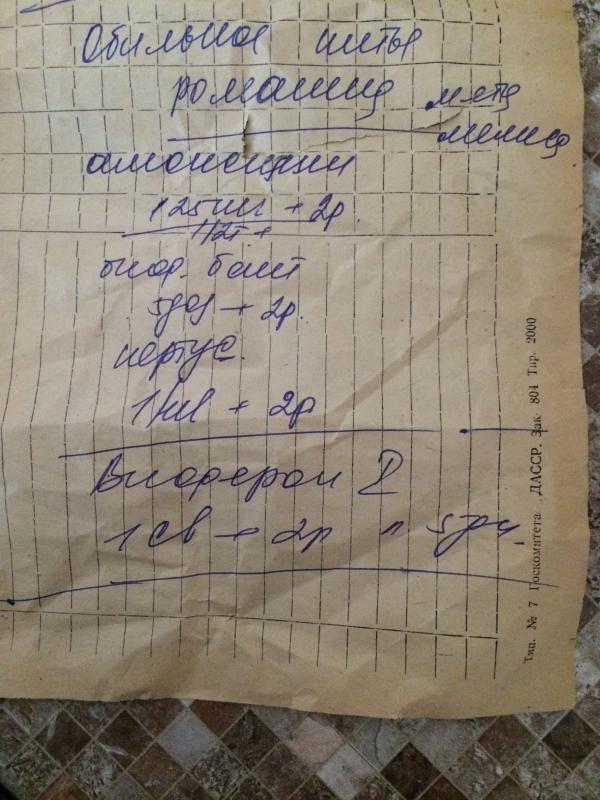 Обильное питье
ромашка мята
мелиса
амоксицилин
125мг + 2р.
1/2т +
5дог + 2р.
1мл + 2р
Виферон I
1 св + 2р п 5дн
Тип. № 7 Госкомитета ДАССР. Зак. 804 Тир. 2000